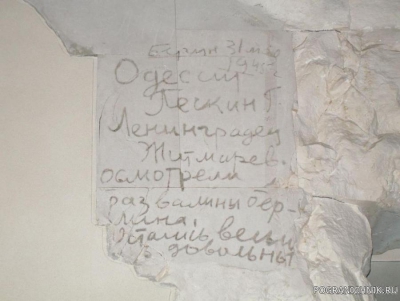 Берлин 31 мая
1945 г.
Одессит
Пескин Г.
Ленинградец
Житмарев.
осмотрели
развалины Бер-
лина.
Остались весьма
довольны
POGRANICHNIK.RU